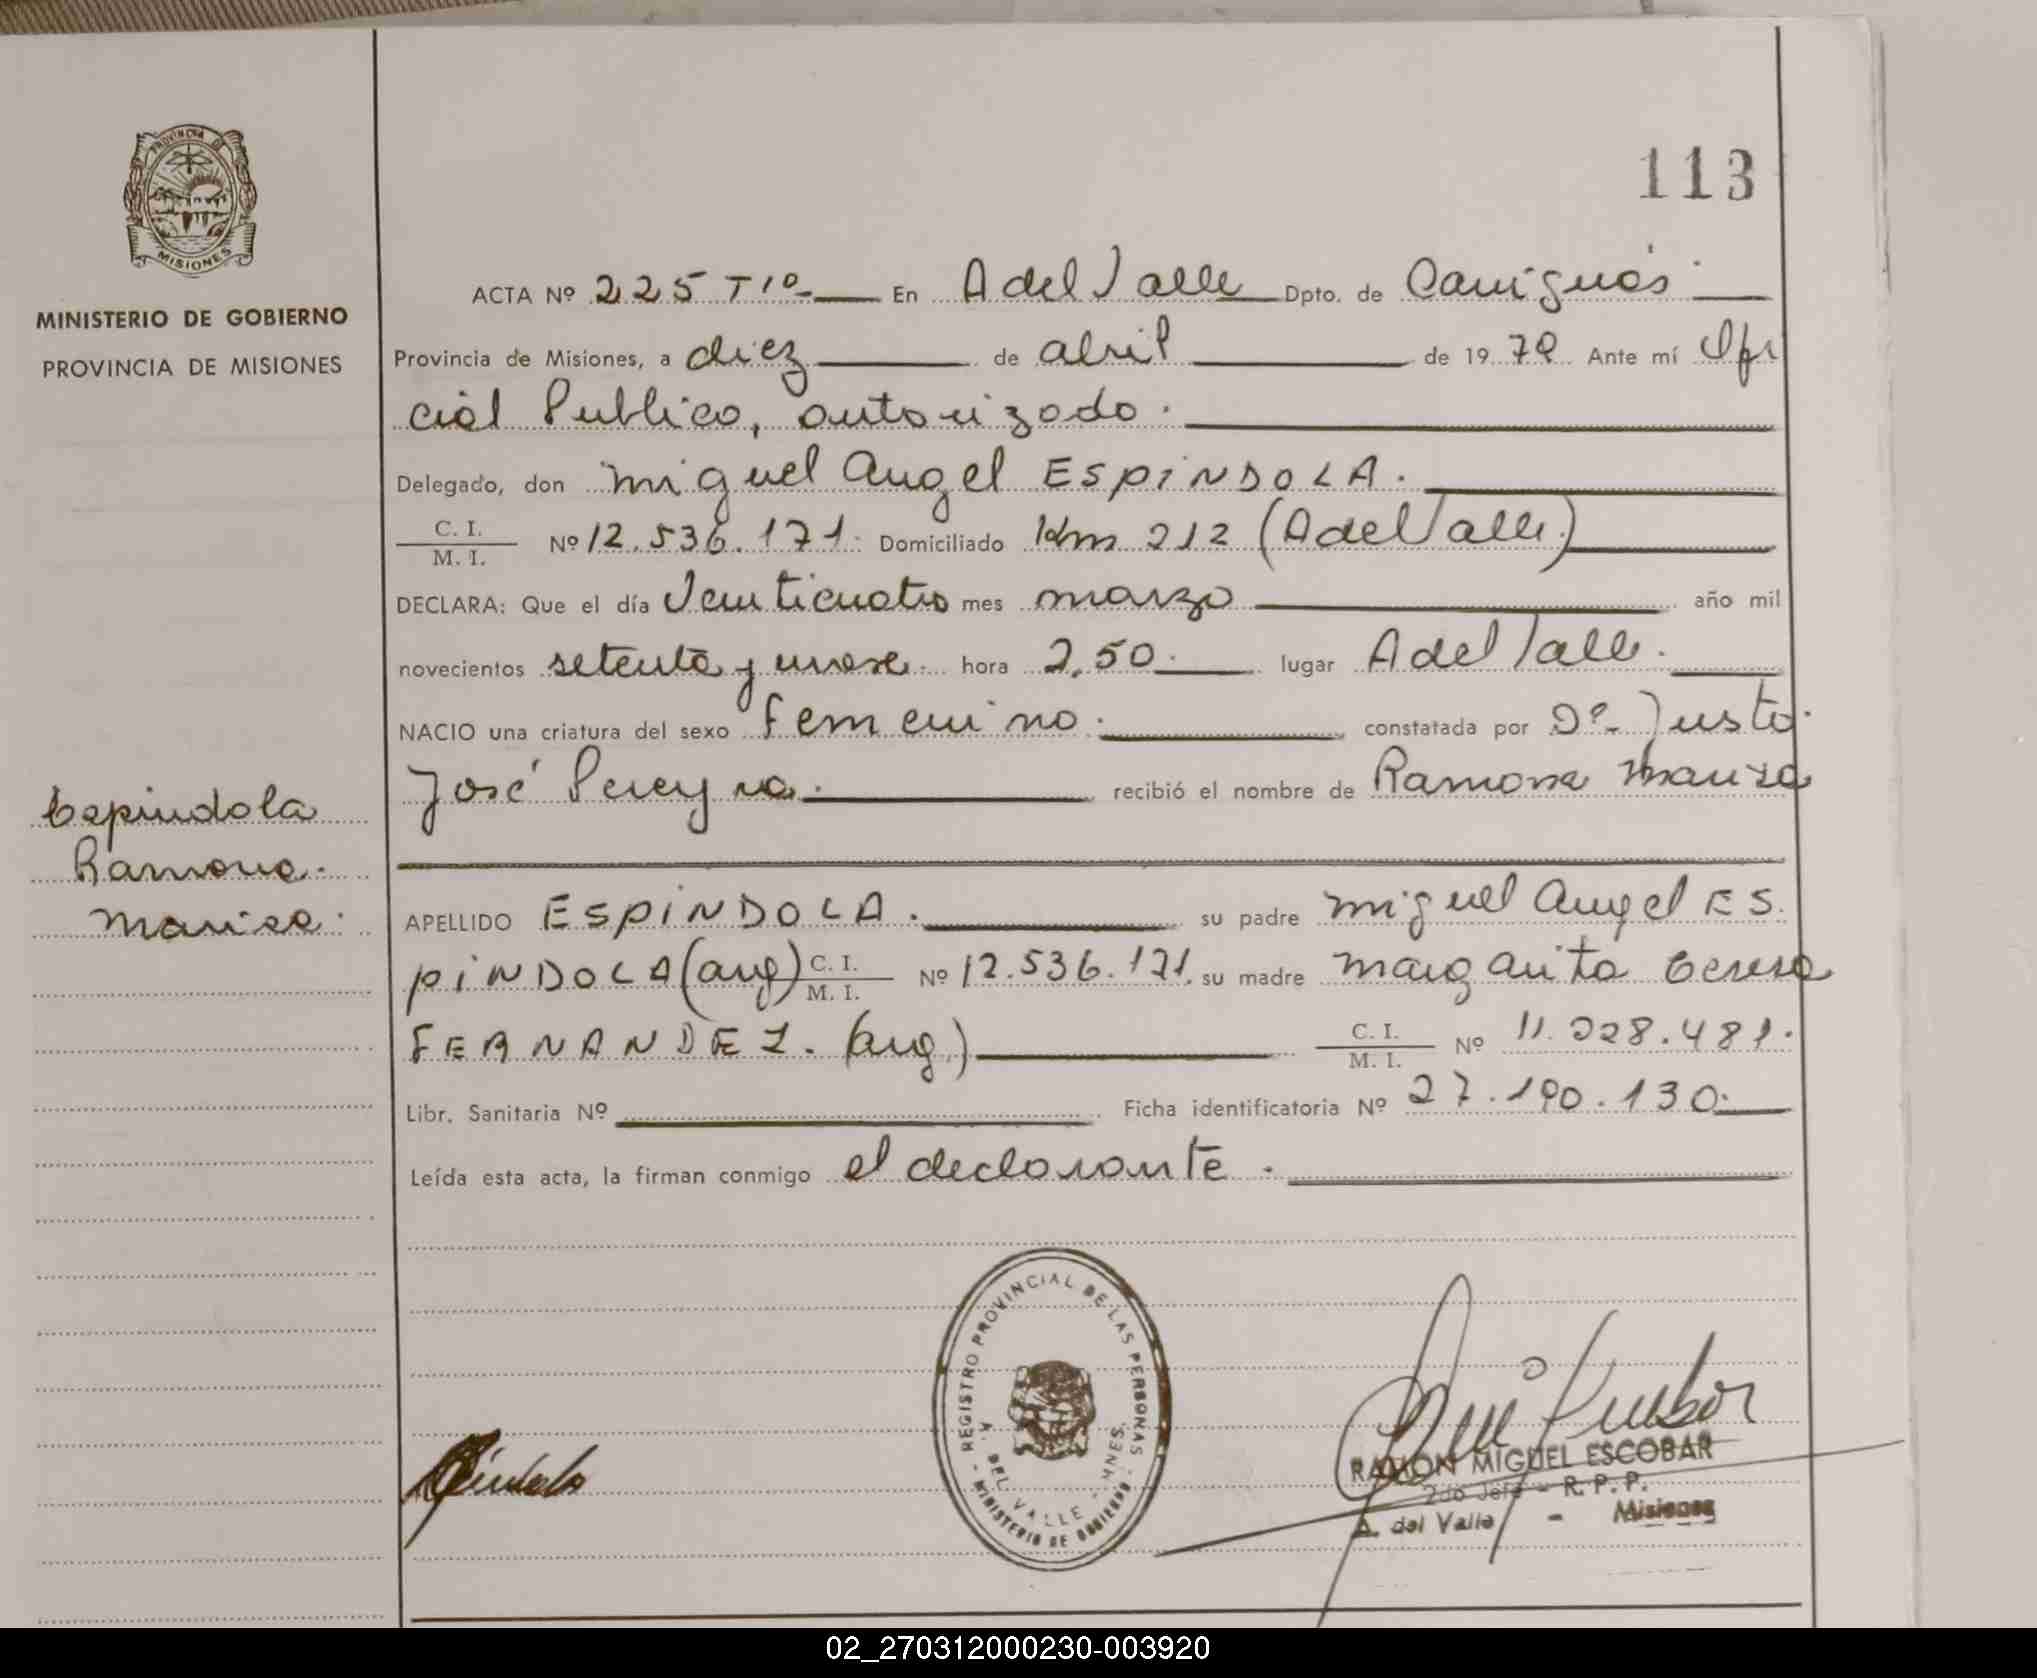 113
PROVINCIA DE
MISIONES
MINISTERIO DE GOBIERNO
PROVINCIA DE MISIONES
ACTA Nº 225 Tº1º En A del Valle Dpto. de Cainguás
Provincia de Misiones, a diez de abril de 1979 Ante mí Ofi
cial Publico, autorizado.
Delegado, don Miguel Angel ESPINDOLA.
C. I.
M. I. Nº 12.536.171. Domiciliado Km 212 (A del Valle)
DECLARA: Que el día Veinticuatro mes marzo año mil
novecientos setenta y nueve. hora 2,50. lugar A del Valle.
NACIO una criatura del sexo femenino. constatada por Dº Justo
José Pereyra. recibió el nombre de Ramona Marisa
APELLIDO ESPINDOLA. su padre Miguel Angel ES.
PINDOLA (arg) C. I.
M. I. Nº 12.536.171. su madre Margarita Teresa
FERNANDEZ. (arg.) C. I.
M. I. Nº 11.228.481.
Libr. Sanitaria Nº Ficha identificatoria Nº 27.190.130.
Leída esta acta, la firman conmigo el declarante.
Espindola
Ramona.
Marisa.
REGISTRO PROVINCIAL DE LAS PERSONAS
A. DEL VALLE - MNES.
- MINISTERIO DE GOBIERNO -
RAMON MIGUEL ESCOBAR
2do Jefe - R. P. P.
A. del Valle - Misiones
02_270312000230-003920